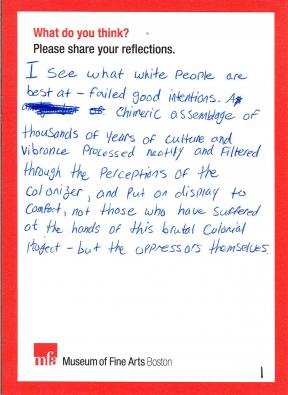 What do you think?
Please share your reflections.
I see what white people are
best at – failed good intentions. A
of Chimeric assemblage of
thousands of years of culture and
vibrance processed neatly and filtered
through the perceptions of the
colonizer, and put on display to
comfort, not those who have suffered
at the hands of this brutal colonial
project – but the oppressors themselves.
mfa Museum of Fine Arts Boston
1